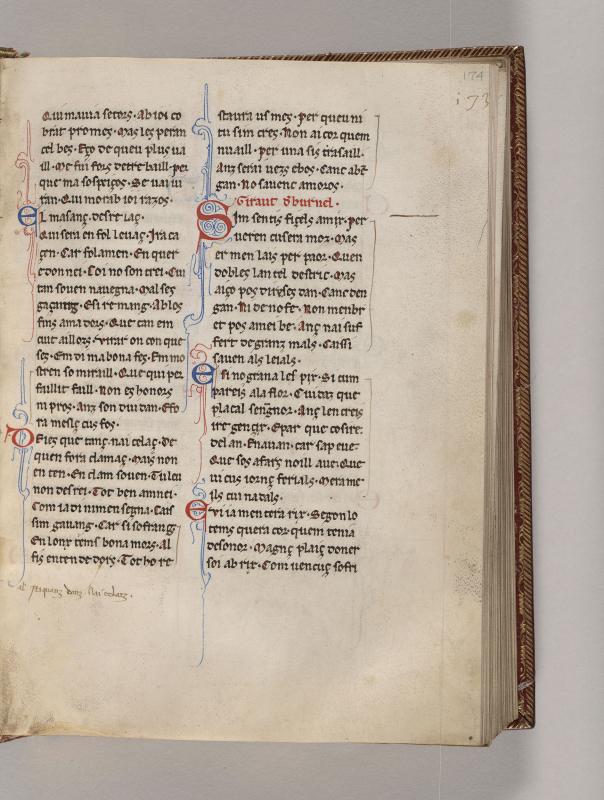 174
i73
Qui mauia secors. Ab ioi co
brar pro mes. Mas les peran
cel bes. Eço de queu plus ua
ill. Me fui fors de tre baill. per
que ma sospiços. Se uai ui
ran. Qui mor ab ioi raços.
EL masanç. desir iaç.
Qui sera en fol leuaç. Ira ca
çen. Car fol amen. En quer
e don nei. Coi no son crei. Cui
tan souen nauegna. Mal ses
Es remang. Ab los
fins amadors. Que tan em
cuit aillors. uirar on con que
ses. Em di ma bona fes. Em mo
stren so miraill. Que qui per
faillit faill. Non es honors
ni pros. Anz son dui dan. Efo
ra mesic cus fos.
DEies que tanç nai celaç. de
quen fora clamaç. Mais non
en ten. En clam souen. Tuleu
non desrei. Tot ben amnei.
Com ia di nimen segna. Cais
sim gauang. Car si sofrang
En lonc tems bona mors. Al
fis entendedors. Tot ho re
staura us mes. per queu ni
tu sim cres. Non ai cor quem
nuaill. per una sis trasaill.
Anz serai uers ebos. Canc abē
gan. No sauenc amoros.
Giraut d burnel.
SIm sentis fiçels amir. per
ueren cusera mor. Mas
er men lais per paor. Quen
dobles lan tel destric. Mas
aiço pos direses dan. Canc den
gan. Ni de no fe. Non menbr
et pos amei be. Anç nai suf
fert de granz mals. Caissi
sauen als leials.
E si no grana les pir. Si cum
pareis ala flor. Cuidaz que
placal sengnor. Anç len creis
ire gençir. E par que cosire.
del an. En auan. car sap eue.
Que sos afarç noill aue. Que
ui cus iornç ferials. Mera me
ils cui nadals.
Eui ia men tera rir. Segon lo
tems quera cor. quem tenia
desonor. Magnç plaiç doner
soi ab rir. Com uencuç sofri